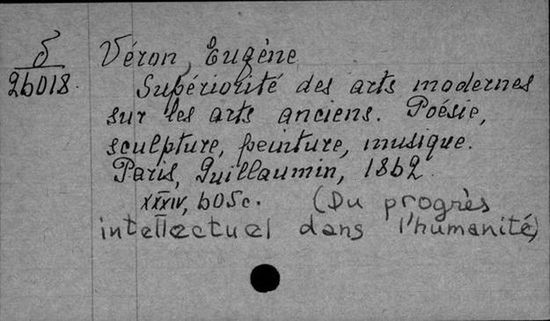 δ Véron, Eugène
26018. Supériorité des arts modernes
sur les arts anciens. Poésie,
sculpture, peinture, musique.
Paris, Guillaumin, 1862.
XXXIV, 605c. (Du progrès
intellectuel dans l'humanité)